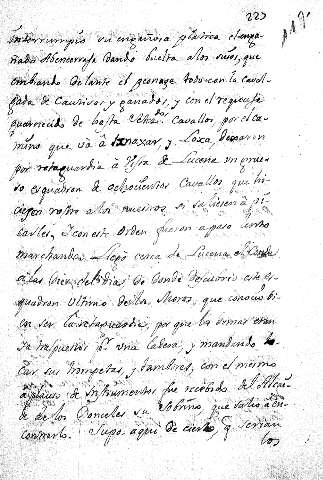 227
interrumpio su engañosa platica el enga
ñado Abencerraje dando buelta a los suios, que
embiando delante el peonage todo con la caval
gada de Cautivos y ganados, y con el
guarnecido de hasta Cavallos, por el ca
mino que va â Iznaxar, y Loxa, dexaron
por retaguardia â vista de Lucena un grue
so esquadron de ochocientos Cavallos que hi
ciesen rostro a los nuestros, si saliesen a pi
carles, y con este orden fueron a paso
marchando. Llegó cerca de Lucena el Conde
a las diez del dia, de donde descubrio este es
quadron ultimo de los Moros, que conocio bi
en ser la retaguardia, por que los demas eran
ya traspuestos a una Ladera, y mandando to
car sus trompetas, y tambores, con el mismo
aplauso de instrumentos fue recibido del Alcai
de de los Donceles su Sobrino, que salio a en
contrarlo. Supo aqui de cierto, q serian
los